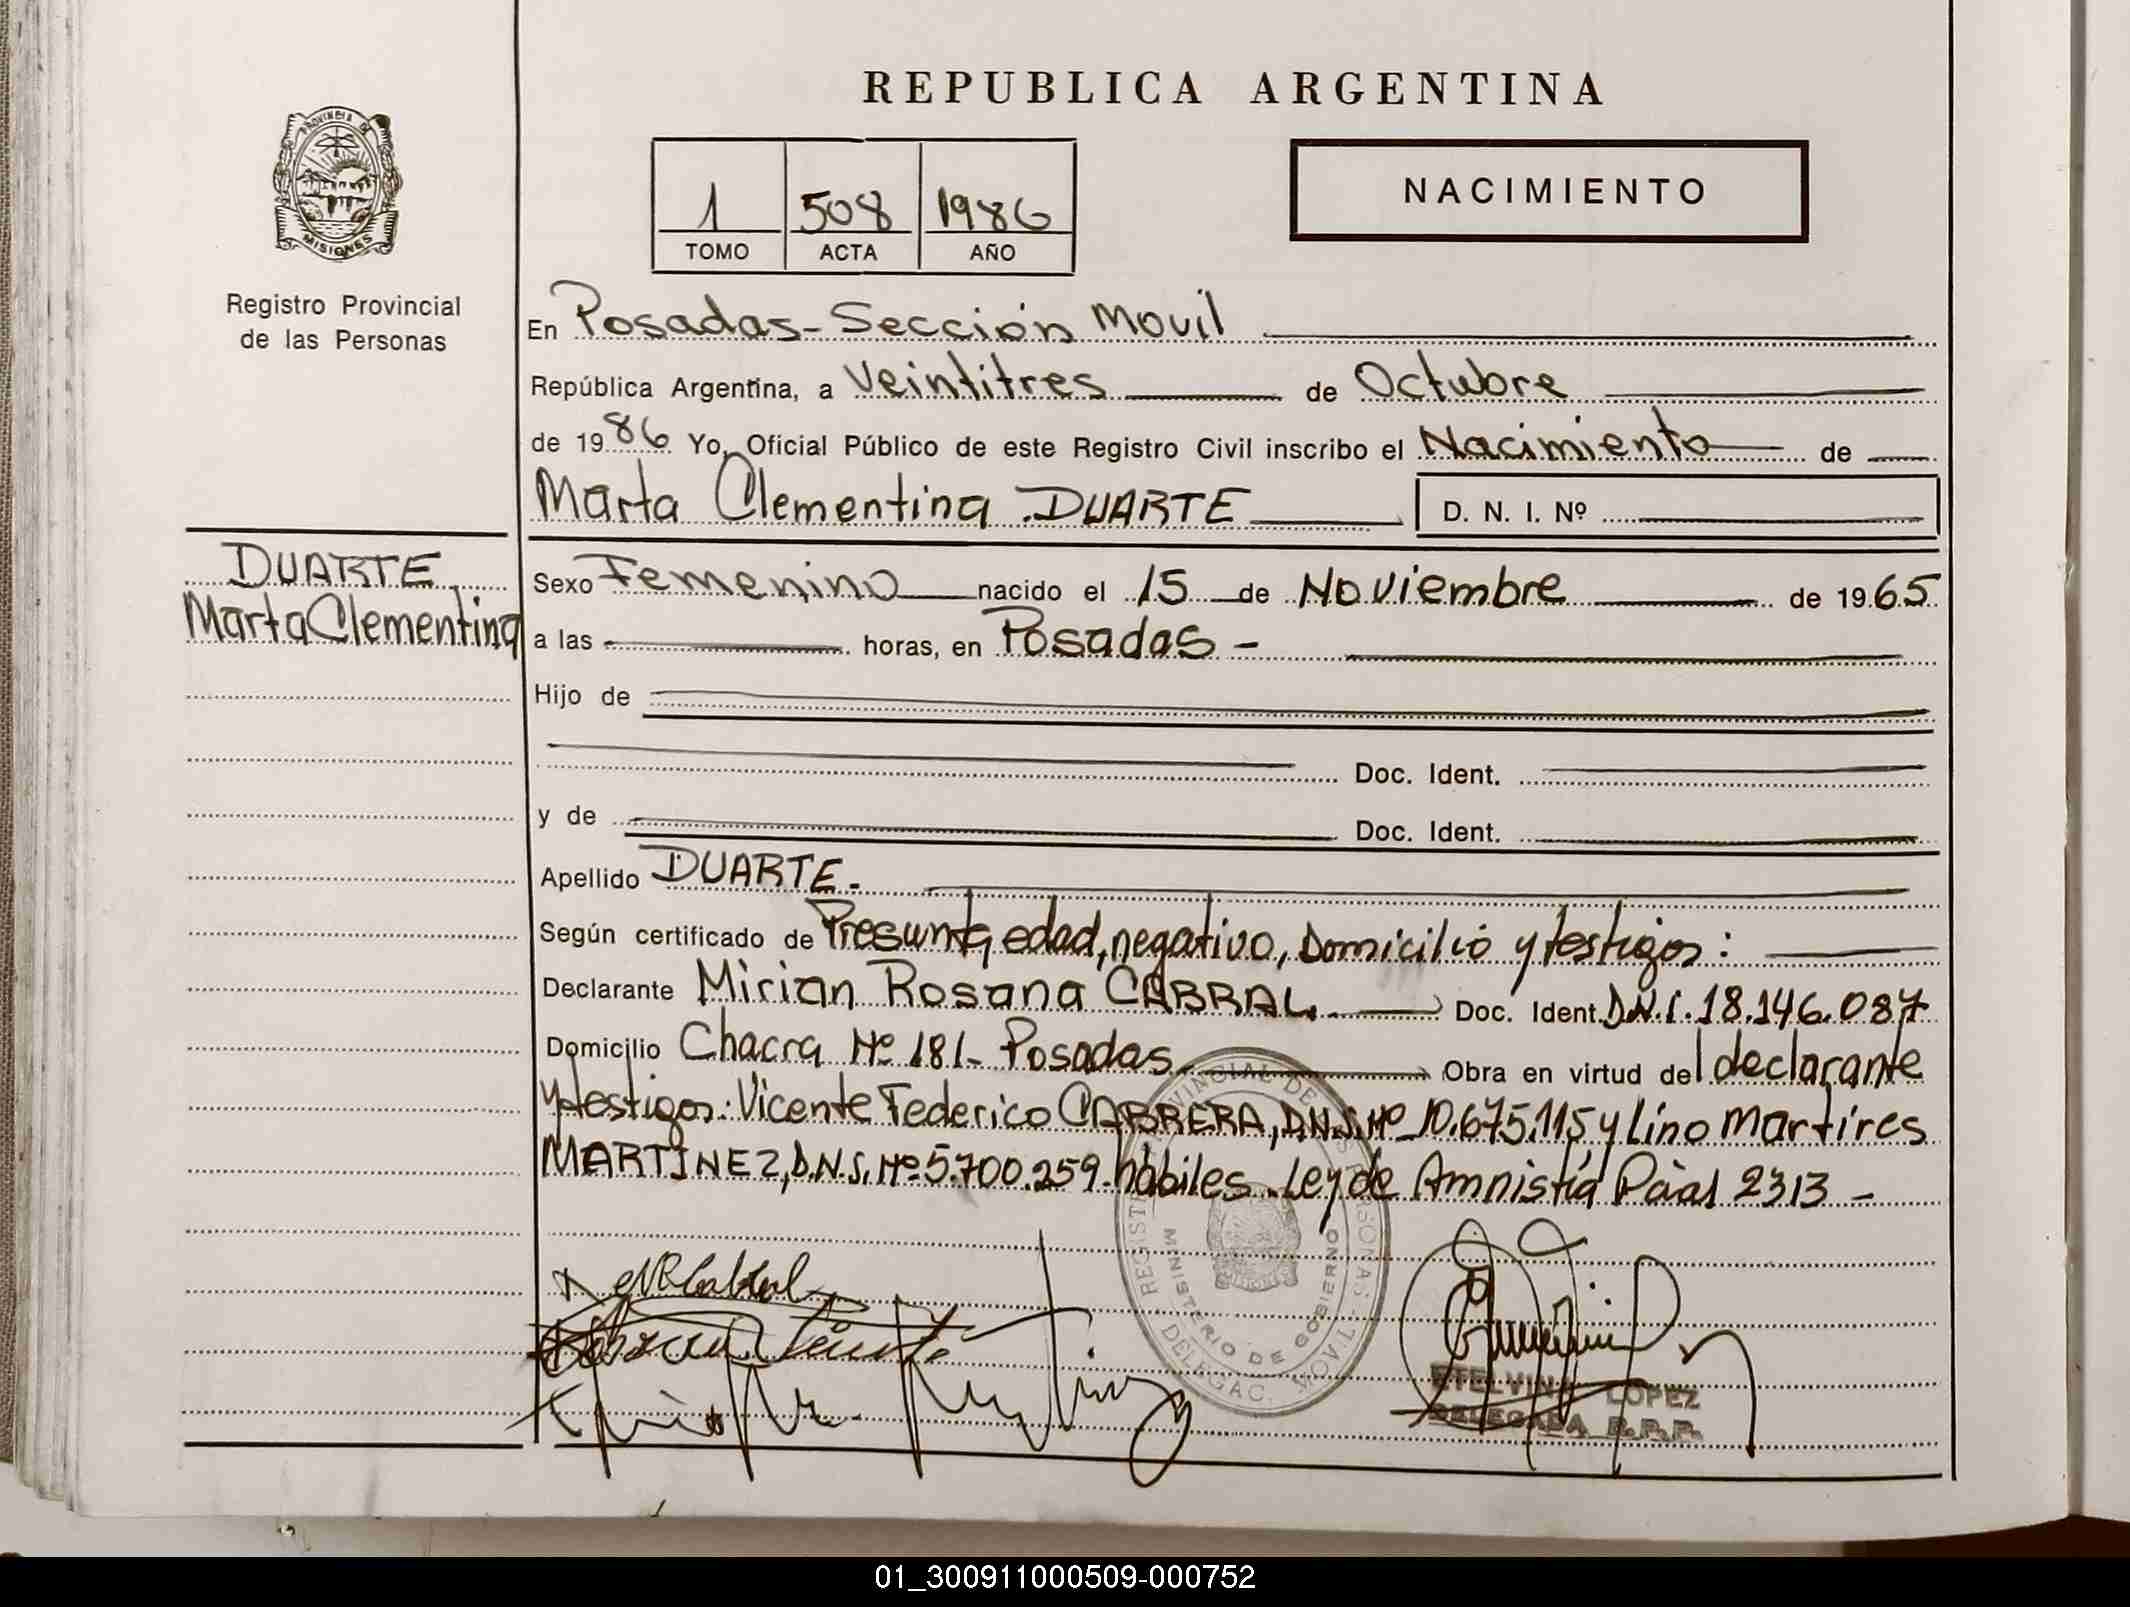 REPUBLICA ARGENTINA
PROVINCIA DE
MISIONES
Registro Provincial
de las Personas
1 508 1986
TOMO ACTA AÑO
NACIMIENTO
En Posadas - Sección Movil
República Argentina, a Veintitres de Octubre
de 1986 Yo, Oficial Público de este Registro Civil inscribo el Nacimiento de
Marta Clementina DUARTE D. N. I. Nº
DUARTE
Marta Clementina
Sexo Femenino nacido el 15 de Noviembre de 1965
a las horas, en Posadas -
Hijo de
Doc. Ident.
y de Doc. Ident.
Apellido DUARTE.
Según certificado de Presunta edad, negativo, Domicilio y testigos:
Declarante Mirian Rosana CABRAL. Doc. Ident. D.N.I. 18.146.087
Domicilio Chacra Nº 181- Posadas Obra en virtud del declarante
y testigos: Vicente Federico CABRERA, D.N.I. Nº 10.675.115 y Lino Martires
MARTINEZ, D.N.I. Nº 5.700.259 hábiles. Ley de Amnistía Pcial 2313 -
REGISTRO PROVINCIAL DE LAS PERSONAS
MINISTERIO DE GOBIERNO
DELEGAC. MOVIL
ETELVINA LOPEZ
DELEGADA R.P.P.
01_300911000509-000752